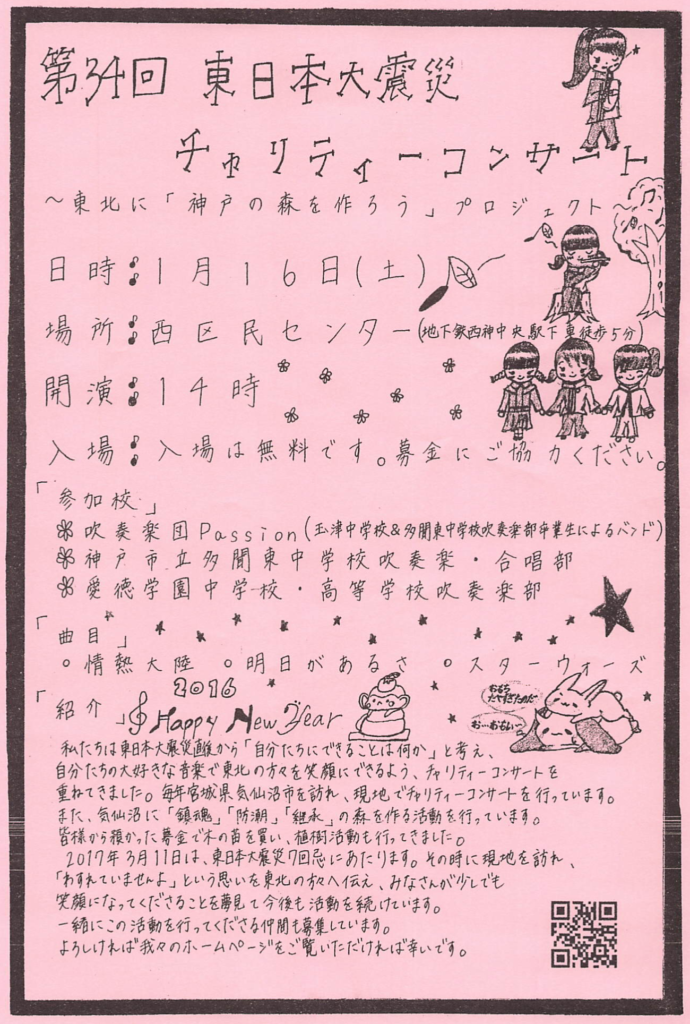 第34回 東日本大震災
チャリティーコンサート
～東北に「神戸の森を作ろう」プロジェクト
日時:1月16日(土)
場所:西区民センター(地下鉄西神中央駅下車徒歩5分)
開演:14時
入場:入場は無料です。募金にご協力ください。
「参加校」
吹奏楽団Passion(玉津中学校&多聞東中学校吹奏楽部卒業生によるバンド)
神戸市立多聞東中学校吹奏楽・合唱部
愛徳学園中学校・高等学校吹奏楽部
「曲目」
○情熱大陸 ○明日があるさ ○スターウォーズ
「紹介」
2016
Happy New Year
おもち
たべすぎたのだー
おぃ…おもい…
私たちは東日本大震災直後から「自分たちにできることは何か」と考え、
自分たちの大好きな音楽で東北の方々を笑顔にできるよう、チャリティーコンサートを
重ねてきました。毎年宮城県気仙沼市を訪れ、現地でチャリティーコンサートを行っています。
また、気仙沼に「鎮魂」「防潮」「継承」の森を作る活動を行っています。
皆様から預かった募金で木の苗を買い、植樹活動も行ってきました。
2017年3月11日は、東日本大震災7回忌にあたります。その時に現地を訪れ、
「わすれていませんよ」という思いを東北の方々へ伝え、みなさんが少しでも
笑顔になってくださることを夢見て今後も活動を続けています。
一緒にこの活動を行ってくださる仲間も募集しています。
よろしければ我々のホームページをご覧いただければ幸いです。